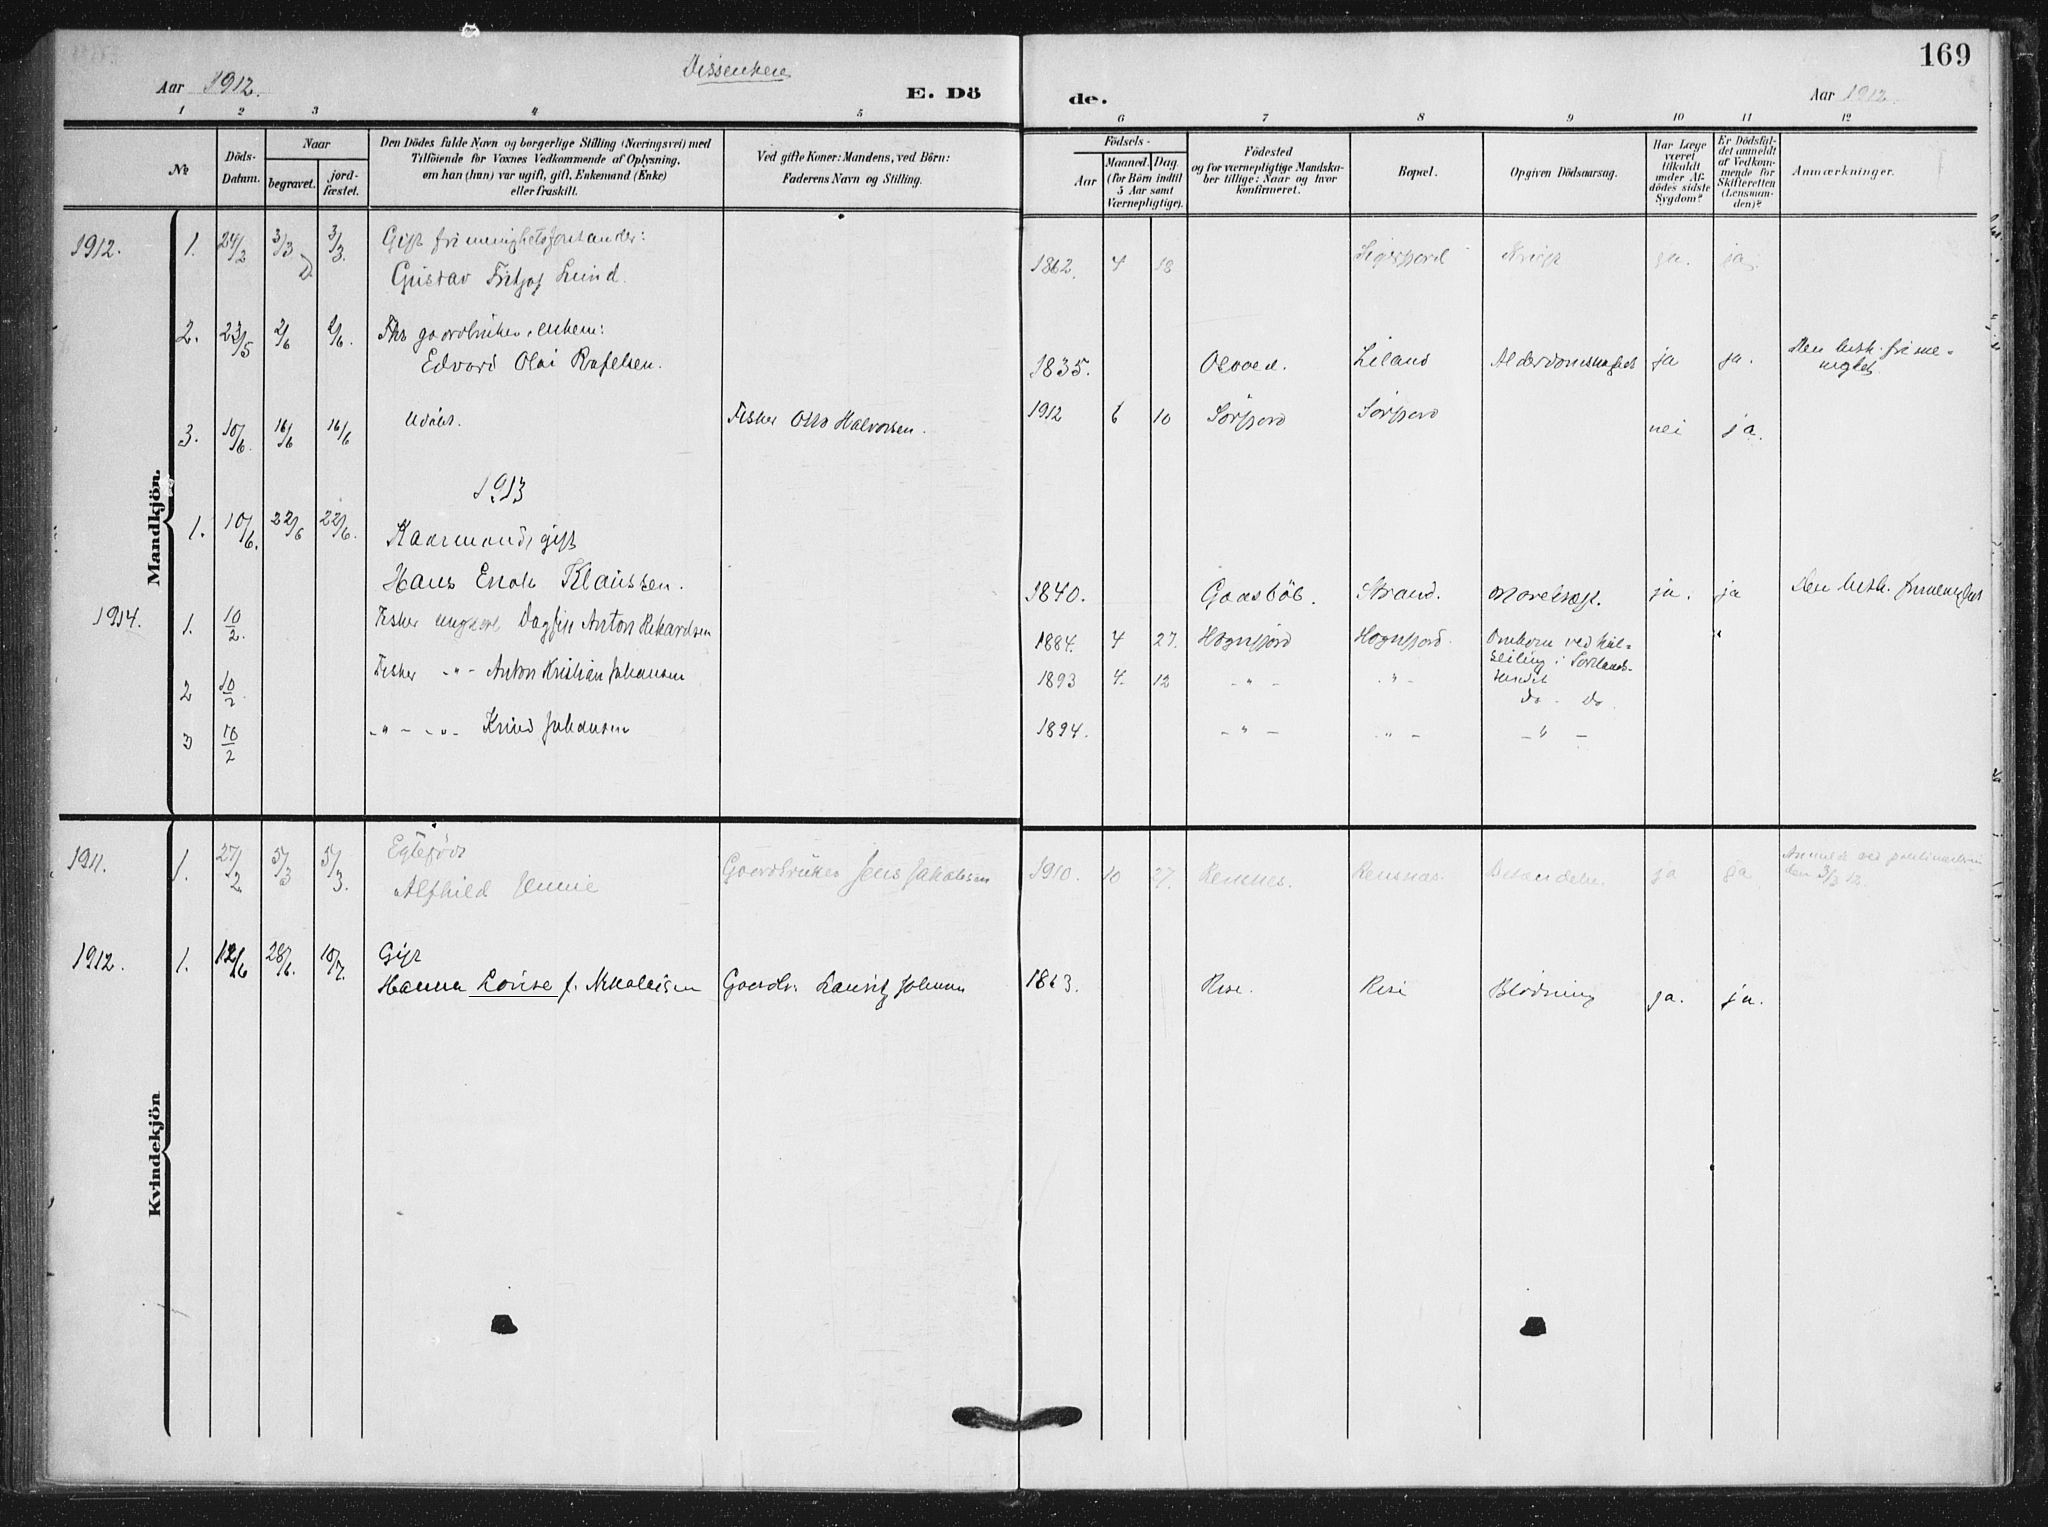 169
Dissentere
Aar 1912.
E. Dö
de.
Aar 1912.
1 2 3 4 5 6 7 8 9 10 11 12
№
Döds-
Datum.
Naar
begravet.
jord-
fæstet.
Den Dödes fulde Navn og borgerlige Stilling (Næringsvei) med
Tilföiende for Voxnes Vedkommende af Oplysning,
om han (hun) var ugift, gift, Enkemand (Enke)
eller fraskilt.
Ved gifte Koner: Mandens, ved Börn:
Faderens Navn og Stilling.
Födsels-
Aar
Maaned. Dag.
(for Börn indtil
5 Aar samt
Værnepligtige).
Födested
og for værnepligtige Mandska-
ber tillige: Naar og hvor
konfirmeret.
Bopæl.
Opgiven Dödsaarsag.
Har Læge
været
tilkaldt
under Af-
dödes sidste
Sygdom?
Er Dödsfal-
det anmeldt
af Vedkom-
mende for
Skifteretten
(Lensman-
den)?
Anmærkninger.
Mandkjön.
1912. 1. 24/2 3/3 3/3. Gift frimenighetsforstander:
Gustav Fritjof Lund. 1862. 4 18 Sigerfjord ja. ja.
2. 23/5 2/6 2/6. Fhv gaardbruker, enkem:
Edvard Olai Rafelsen. 1835. Liland Alderdomssvaghet ja ja. Den luth. frime-
nighet.
3. 10/6. 16/6 16/6 Udöbt. Fisker Otto Halvorsen. 1912 6 10 Sörfjord Sörfjord nei ja.
1913
1. 10/6. 22/6 22/6. Kaarmand, gift
Hans Enok Klaussen. 1840. Gaasböl. Strand. ja. ja Den luth. frimenighet
1914. 1. 10/2. Fisker ungkarl Dagfin Anton Rikardsen 1884. 4 27. Hognfjord Hognfjord. Omkom ved kul-
seiling i Sortlands-
sundet
2 10/2. Fisker -"- Anton Kristian Johansen 1893 4. 12 -"- -"- Do. Do.
3 10/2 -"- -"- Knud Johansen 1894. -"- -"- -"-
Kvindekjön
1911. 1. 27/2 5/3 5/3. Egtefödt
Alfhild Jennie Gaardbruker Jens Jakobsen 1910. 10 27. Rensnes. Rensnes. ja ja den 3/3 12.
1912. 1. 12/6 28/6. 10/7. Gift
Hanna Lovise f. Nikolaisen Gaardbr. Lauritz Johnsen 1863. Rise. Rise Blödning ja. ja.